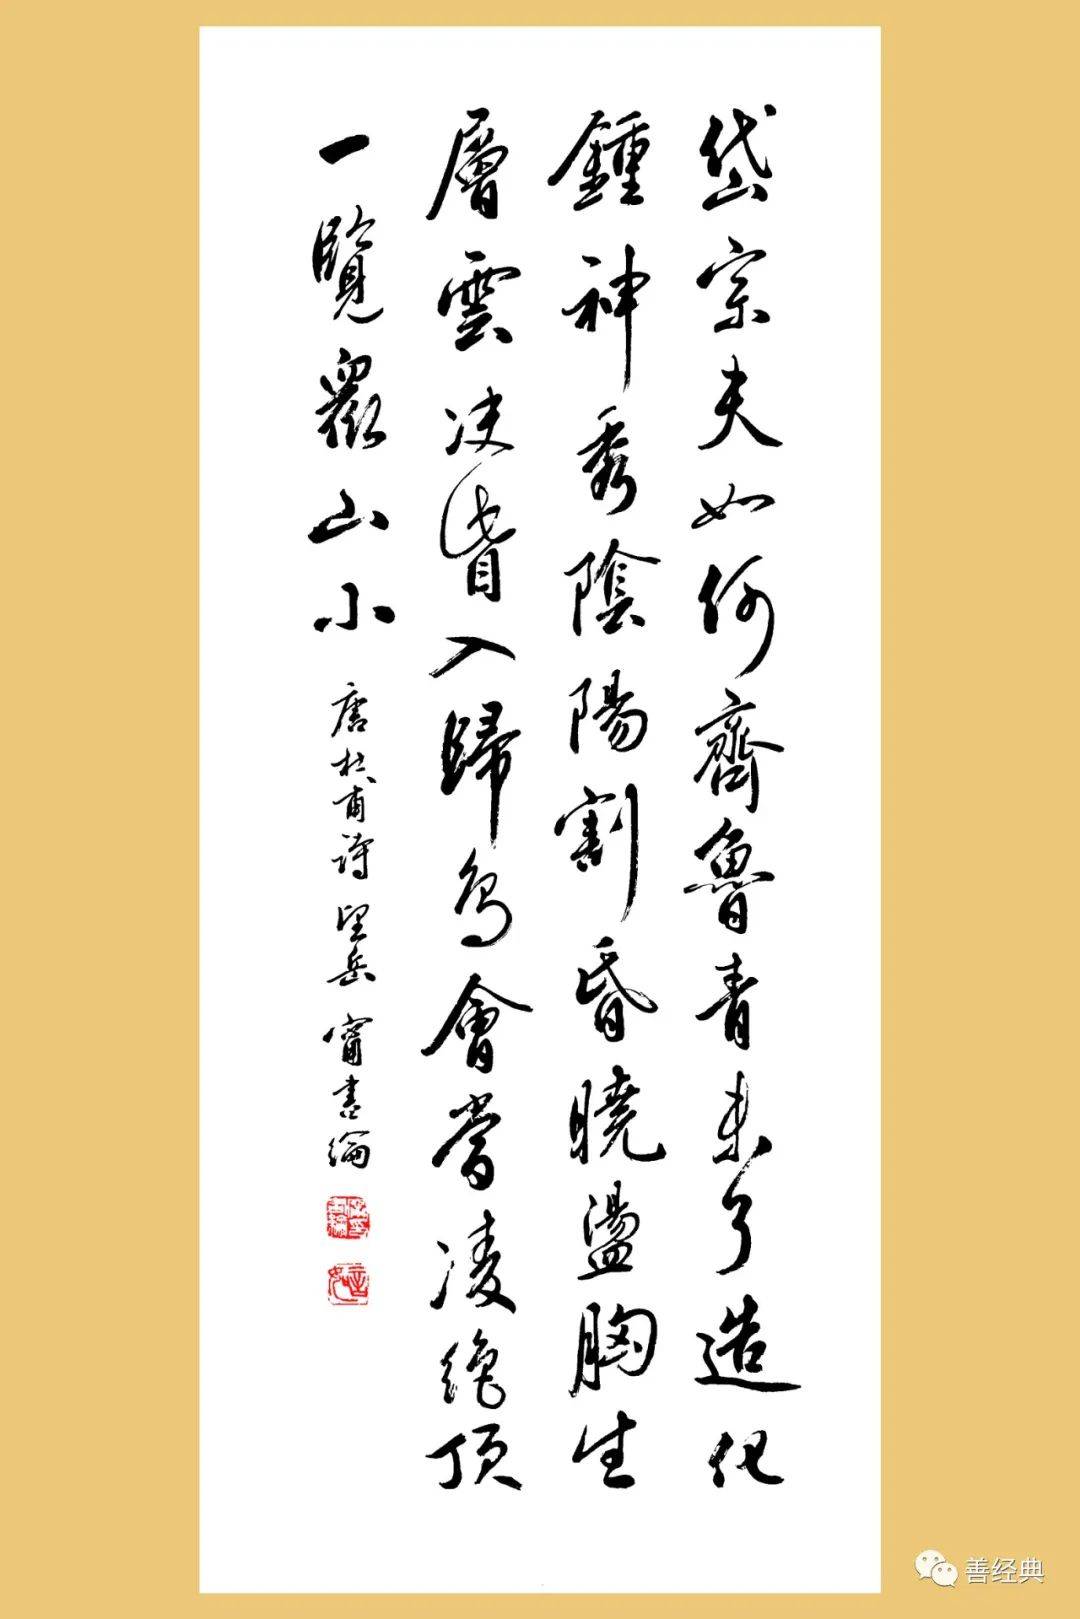 岱宗夫如何齊魯青未了造化
鍾神秀陰陽割昏曉盪胸生
層雲决眥入歸鳥會當凌絶頂
一覽眾山小
唐杜甫詩望岳甯書綸
善经典